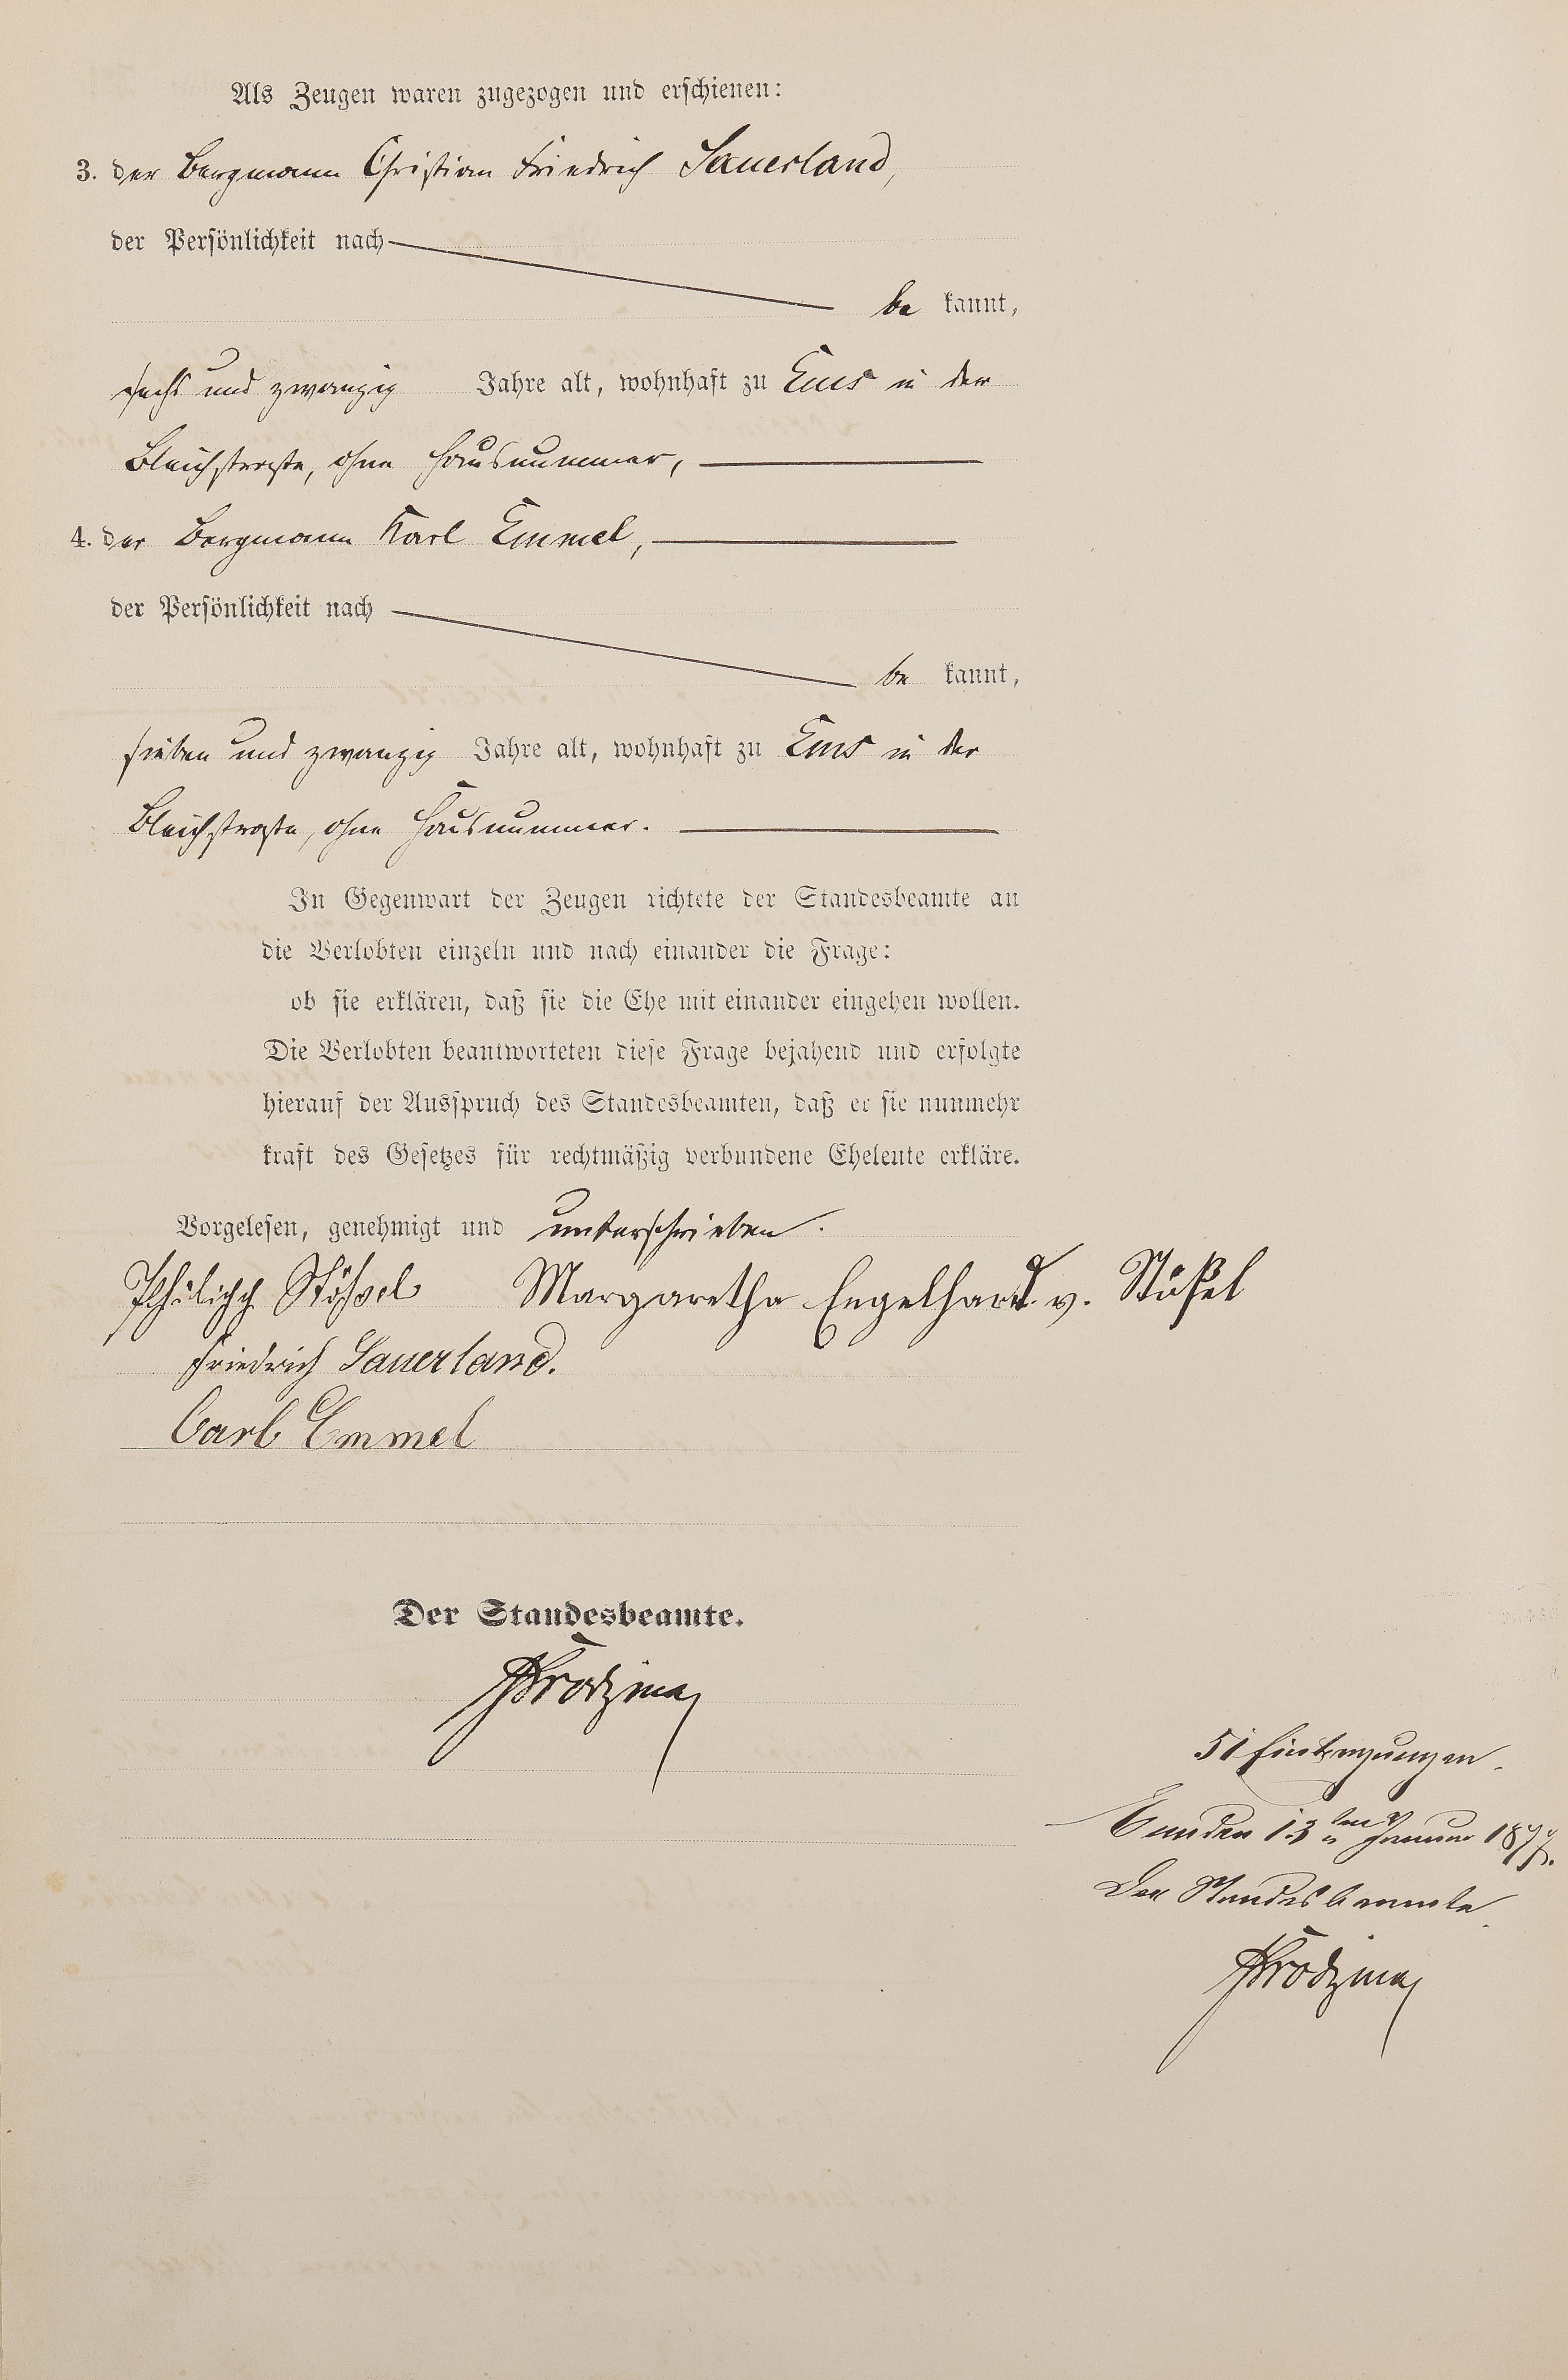 Als Zeugen waren zugezogen und erschienen:
3. der Bergmann Christian Friedrich Sauerland,
der Persönlichkeit nach
be kannt,
sechs und zwanzig Jahre alt, wohnhaft zu Ems in der
Bleichstraße, ohne Hausnummer,
4. der Bergmann Karl Emmel,
der Persönlichkeit nach
be kannt,
sieben und zwanzig Jahre alt, wohnhaft zu Ems in der
Bleichstraße, ohne Hausnummer.
In Gegenwart der Zeugen richtete der Standesbeamte an
die Verlobten einzeln und nach einander die Frage:
ob sie erklären, daß sie die Ehe mit einander eingehen wollen.
Die Verlobten beantworteten diese Frage bejahend und erfolgte
hierauf der Ausspruch des Standesbeamten, daß er sie nunmehr
kraft des Gesetzes für rechtmäßig verbundene Eheleute erkläre.
Vorgelesen, genehmigt und unterschrieben.
Philipp Stößel Margaretha Engelhard v. Stößel
Friedrich Sauerland.
Carl Emmel
Der Standesbeamte.
51 Eintragungen.
den 13ten Januar 1877.
Der Standesbeamte